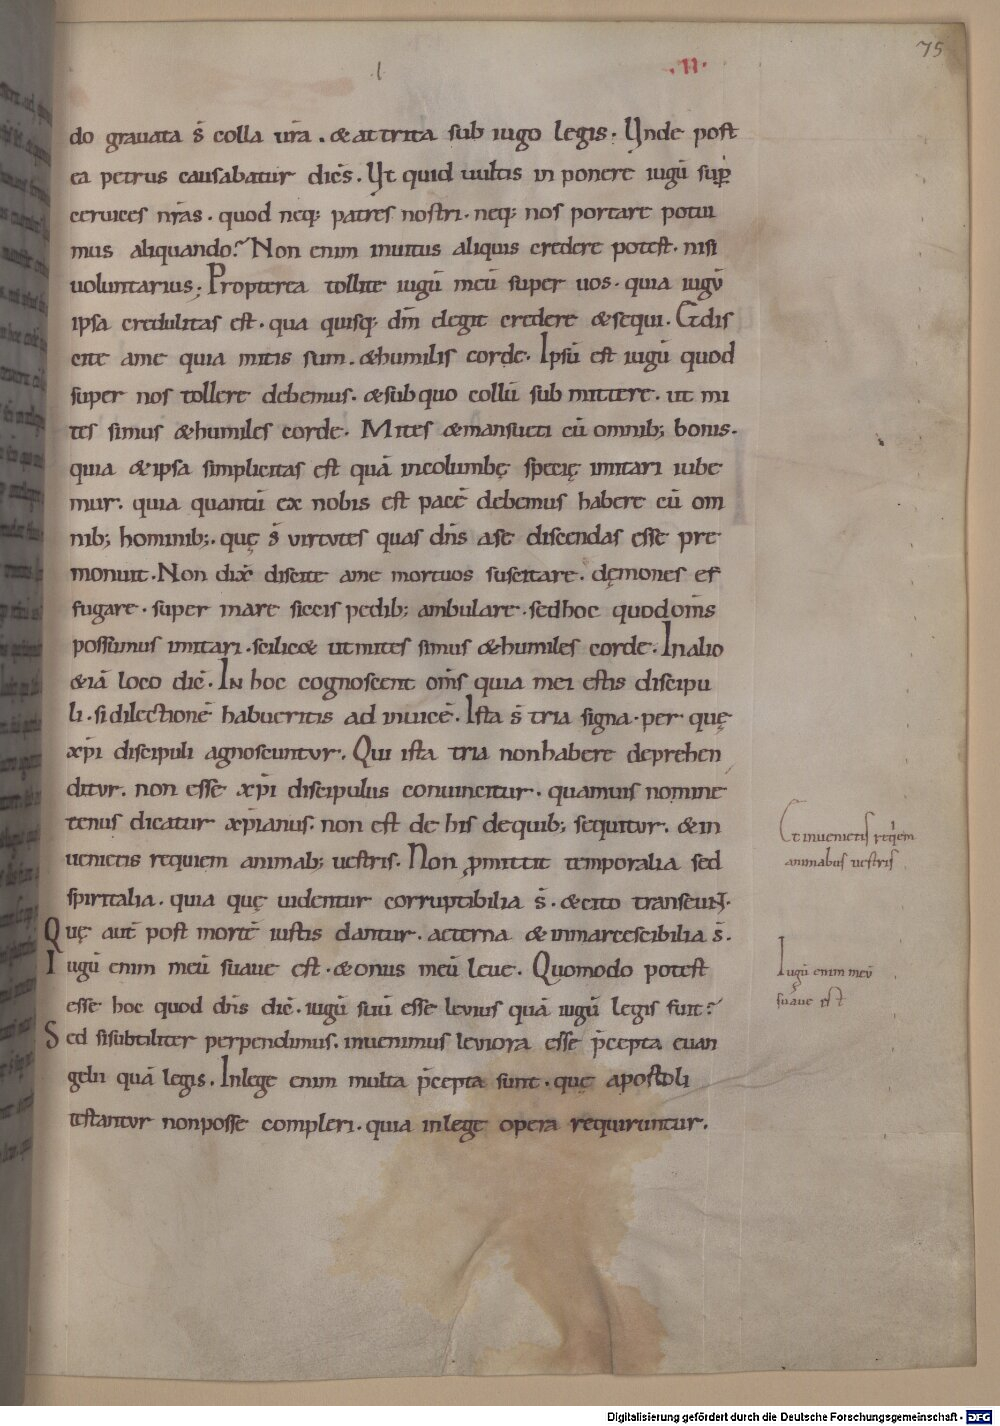 75
.II.
do grauata s̄ colla ūra . & attrita sub iugo legis. Unde post
ea petrus causabatur dicēs . Ut quid uultis in ponere iugū sup̄
ceruices nr̄as . quod neq; patres nostri . neq; nos portare potui
mus aliquando? Non enim inuitus aliquis credere potest . nisi
uoluntarius; Propterea tollite iugū meū super uos . quia iugū
ipsa credulitas est . qua quisq; dm̄ elegit credere & sequi . Et dis
cite ame quia mitis sum . & humilis corde . Ipsū est iugū quod
super nos tollere debemus . & sub quo collū sub mittere . ut mi
tes simus & humiles corde . Mites & mansueti cū omnib; bonis .
quia & ipsa simplicitas est quā in columbę specię imitari iube
mur . quia quantū ex nobis est pacē debemus habere cū om
nib; hominib; . quę s̄ virtutes quas dn̄s ase discendas esse pre
monuit . Non dix̄ discite ame mortuos suscitare . dęmones ef
fugare . super mare siccis pedib; ambulare . sed hoc quod om̄s
possumus imitari . scilic& ut mites simus & humiles corde . In alio
& iā loco dic̄ . In hoc cognoscent om̄s quia mei estis discipu
li . si dilectionē habueritis ad inuicē . Ista s̄ tria signa . per quę
xp̄i discipuli agnoscuntur . Qui ista tria non habere deprehen
ditur . non esse xp̄i discipulus conuincitur . quamuis nomine
tenus dicatur xp̄ianus . non est de his de quib; sequitur . & in
uenietis requiem animab; uestris . Non ꝓmittit temporalia sed
spiritalia . quia quę uidentur corruptibilia s̄ . & cito transeunt .
Quę aut̄ post mortē iustis dantur . aeterna & inmarcescibilia s̄ .
Iugū enim meū suaue est . & onus meū leue . Quomodo potest
esse hoc quod dn̄s dic̄ . iugū suū esse levius quā iugū legis fuit?
Sed si subtiliter perpendimus . inuenimus leviora esse p̄cepta euan
gelii quā legis . In lege enim multa p̄cepta sunt . quę apostoli
testantur non posse compleri . quia in lege opera requiruntur .
Et inuenietis req̇em
animabus uestris
Iugū enim meū
suaue est
Digitalisierung gefördert durch die Deutsche Forschungsgemeinschaft - DFG